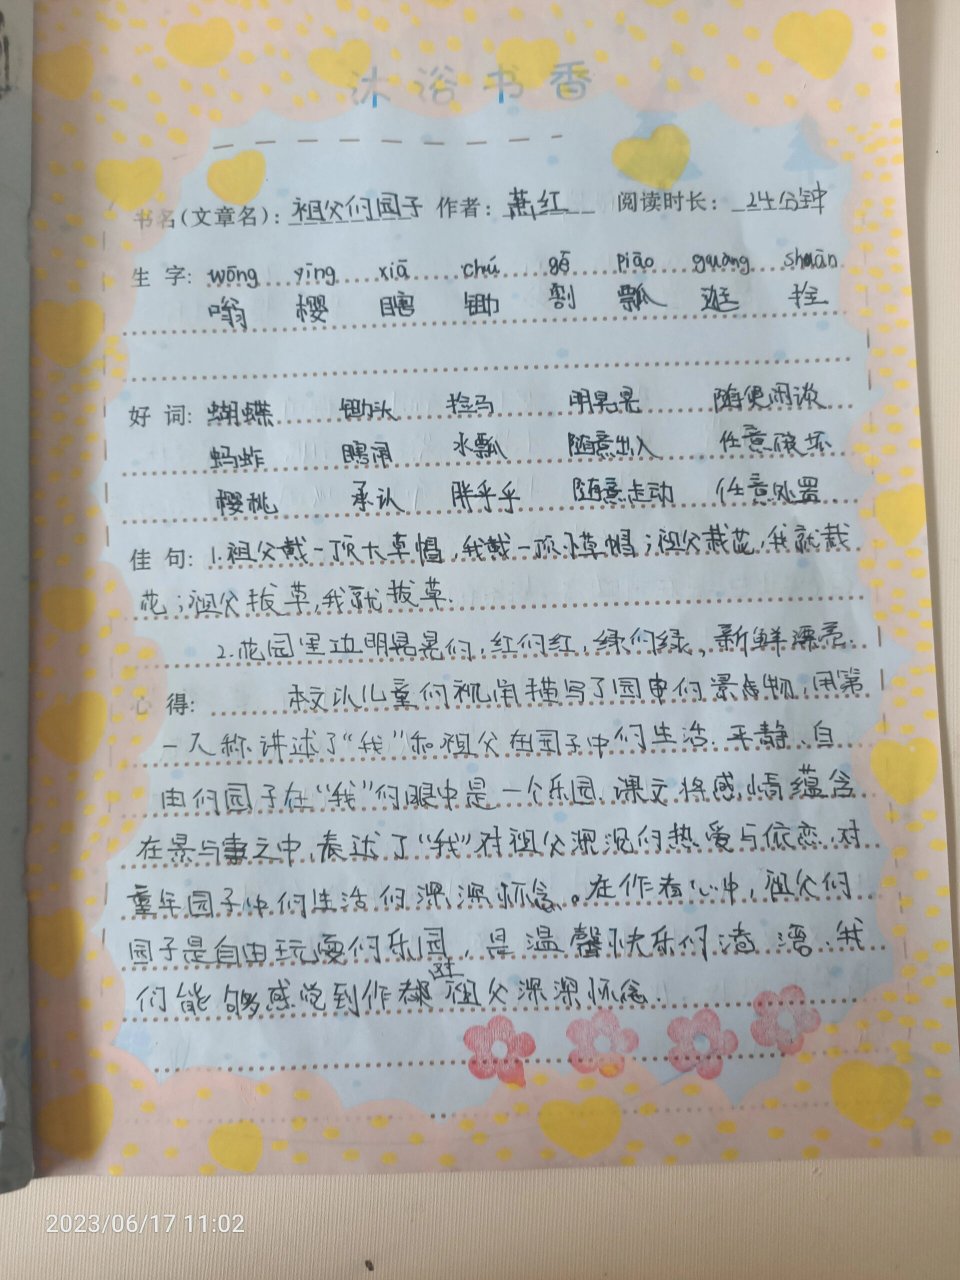 沐浴书香
书名(文章名): 祖父的园子 作者: 萧红 阅读时长: 24分钟
生字: wōng yīng xiā chú gē piāo guàng shuān
嗡 樱 瞎 锄 割 瓢 逛 拴
好词: 蝴蝶 锄头 拴马 明晃晃 随便闲谈
蚂蚱 瞎闹 水瓢 随意出入 任意破坏
樱桃 承认 胖乎乎 随意走动 任意处置
佳句: 1.祖父戴一顶大草帽,我戴一顶小草帽;祖父栽花,我就栽
花;祖父拔草,我就拔草.
2.花园里边明晃晃的,红的红,绿的绿,新鲜漂亮.
心得: 本文以儿童的视角描写了园中的景与物,用第
一人称讲述了“我”和祖父在园子中的生活.平静、自
由的园子在“我”的眼中是一个乐园.课文将感情蕴含
在景与事之中,表达了“我”对祖父深深的热爱与依恋,对
童年园子中的生活的深深怀念。在作者心中,祖父的
园子是自由玩耍的乐园,是温馨快乐的港湾.我
们能够感觉到作者对祖父深深怀念.
2023/06/17 11:02